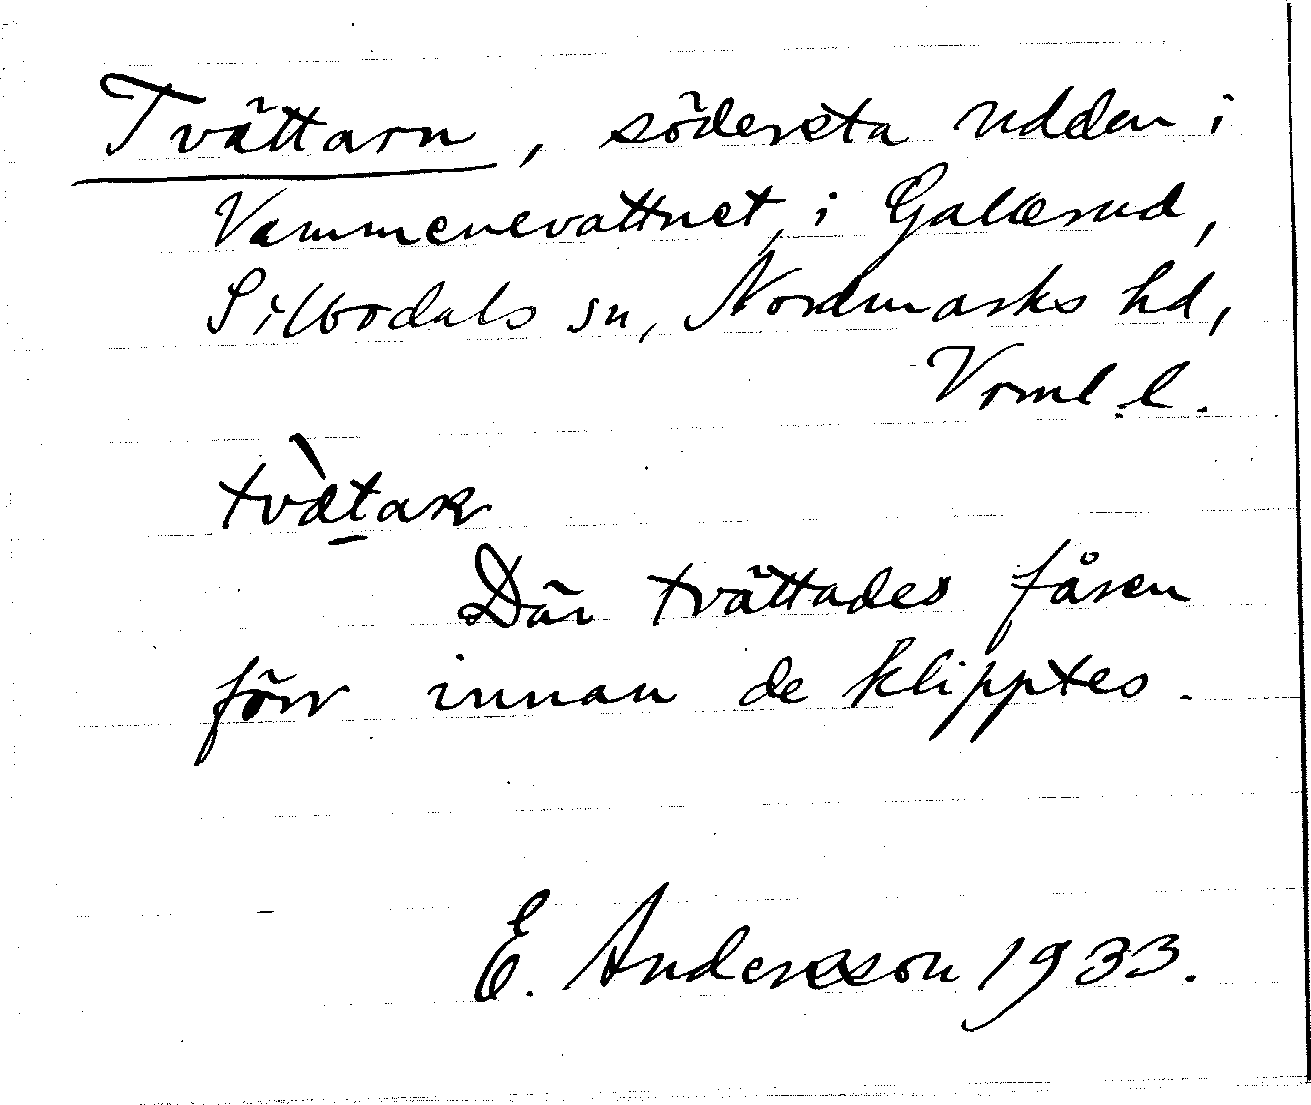 Tvättarn, södersta udden i
Vammenevattnet, i Galserud,
Silbodals sn, Nordmarks hd,
Vrml. l.
tvæ̀tar
Där tvättades fåren
förr innan de klipptes.
E. Andersson 1933.